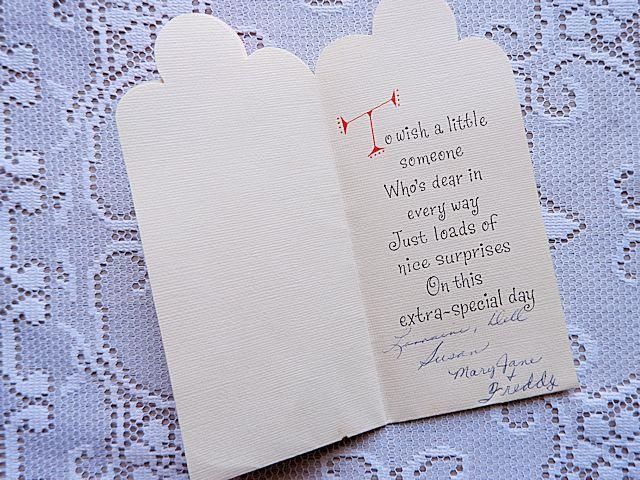 To wish a little
someone
Who's dear in
every way
Just loads of
nice surprises
On this
extra-special day
Lorraine, Dell
Susan
Mary Jane
+ Freddy